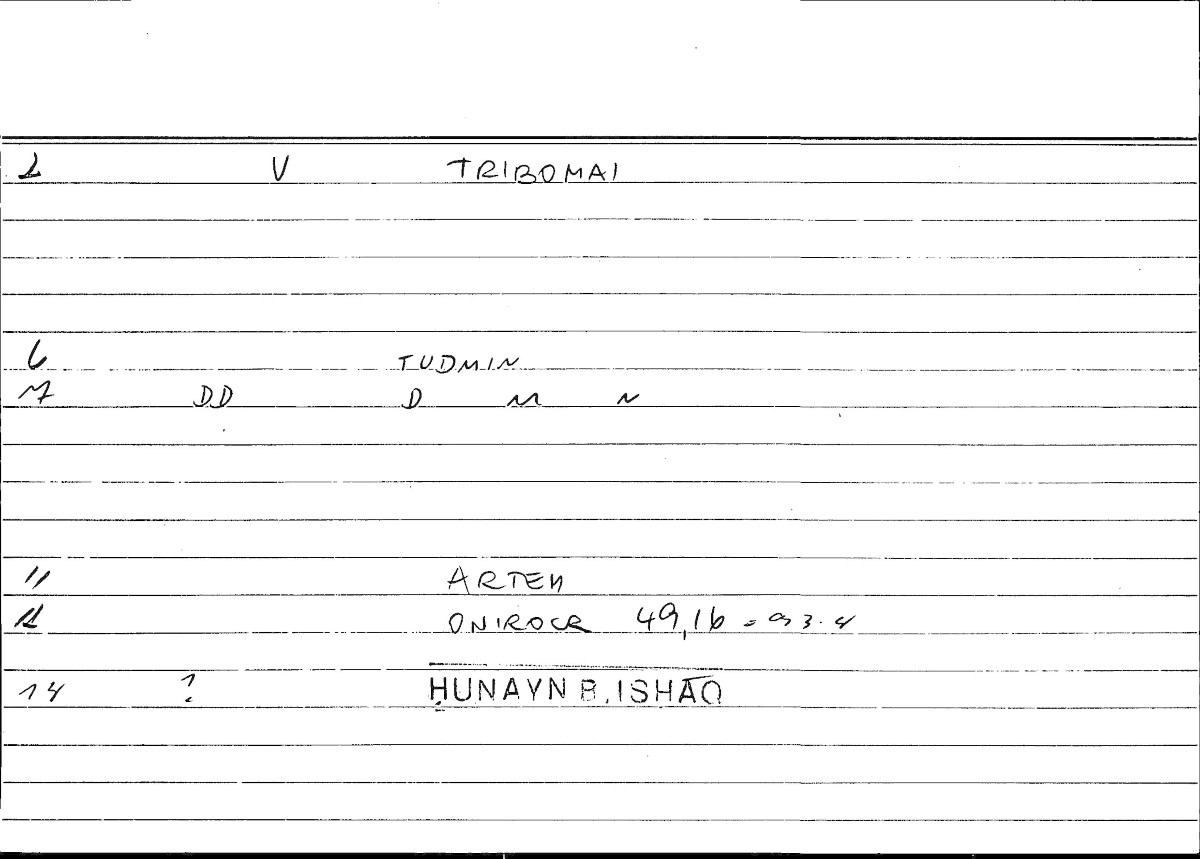 2 V TRIBOMAI
6 TUDMIN
7 DD D M N
11 ARTEM
12 ONIROCR 49,16 = 93.4
14 ? ḤUNAYN B. ISḤĀQ